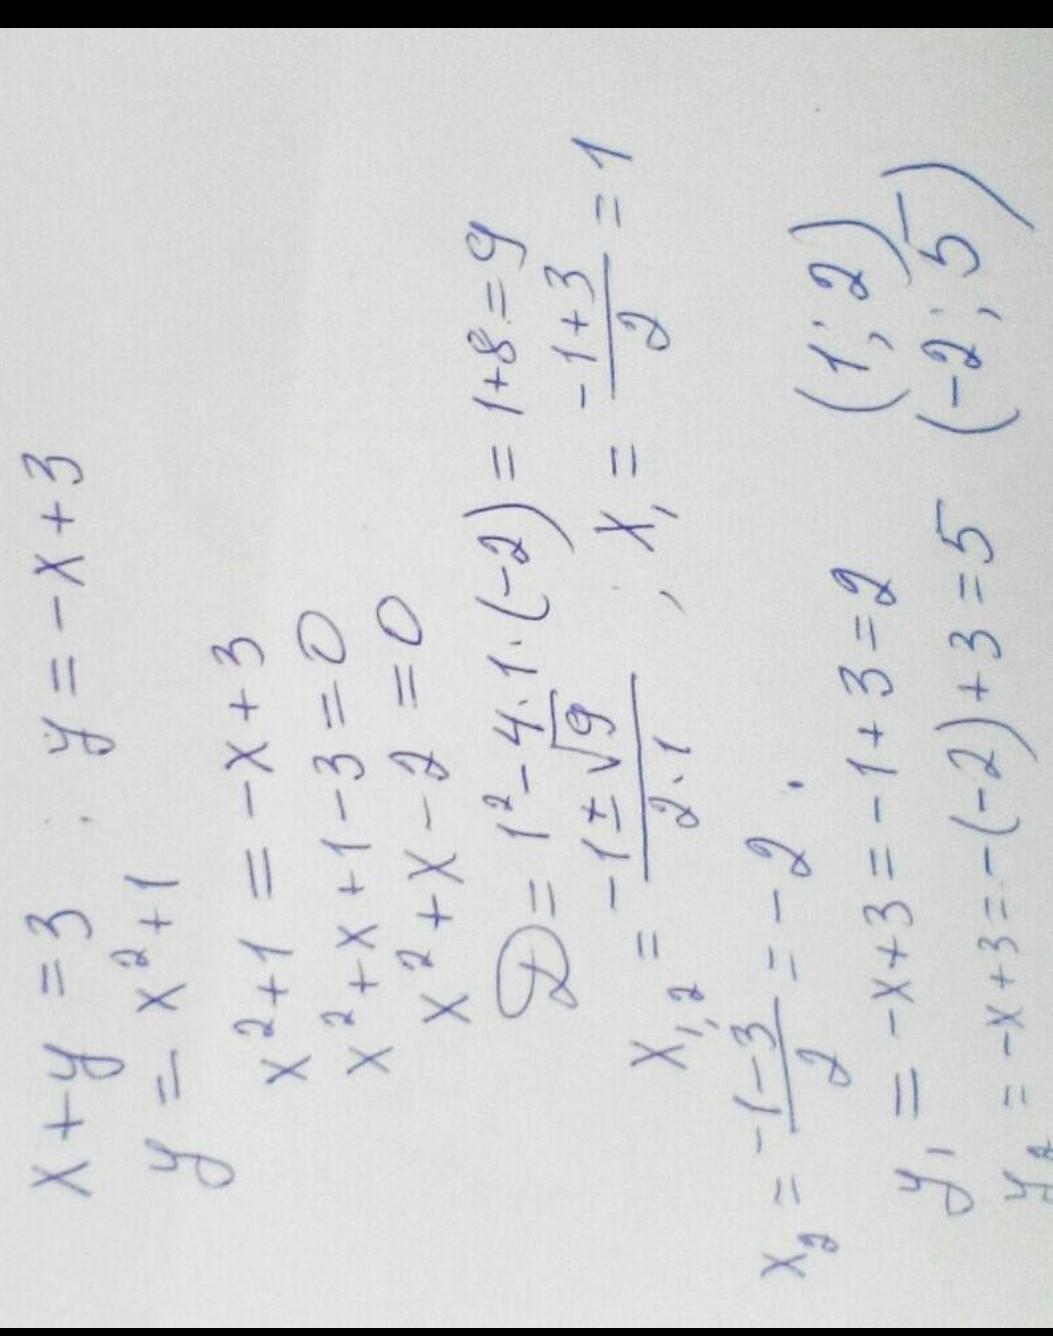 x + y = 3 ; y = -x + 3
y = x² + 1
x² + 1 = -x + 3
x² + x + 1 - 3 = 0
x² + x - 2 = 0
D = 1² - 4·1·(-2) = 1 + 8 = 9
x₁,₂ = (-1 ± √9)/(2·1) ; x₁ = (-1+3)/2 = 1
x₂ = (-1-3)/2 = -2.
y₁ = -x + 3 = -1 + 3 = 2 (1; 2)
y₂ = -x + 3 = -(-2) + 3 = 5 (-2; 5)